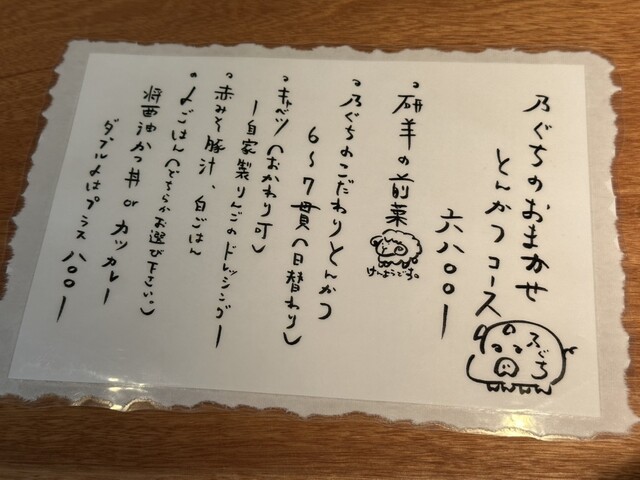 乃ぐちのおまかせ
とんかつコース
六八〇〇ー
乃ぐち
・研羊の前菜
けんようです。
・乃ぐちのこだわりとんかつ
6〜7貫(日替わり)
・キャベツ(おかわり可)
ー自家製りんごのドレッシングー
・赤みそ豚汁、白ごはん
・〆ごはん(どちらかお選び下さい。)
将西油かつ丼 or カツカレー
ダブル〆はプラス 八〇〇ー